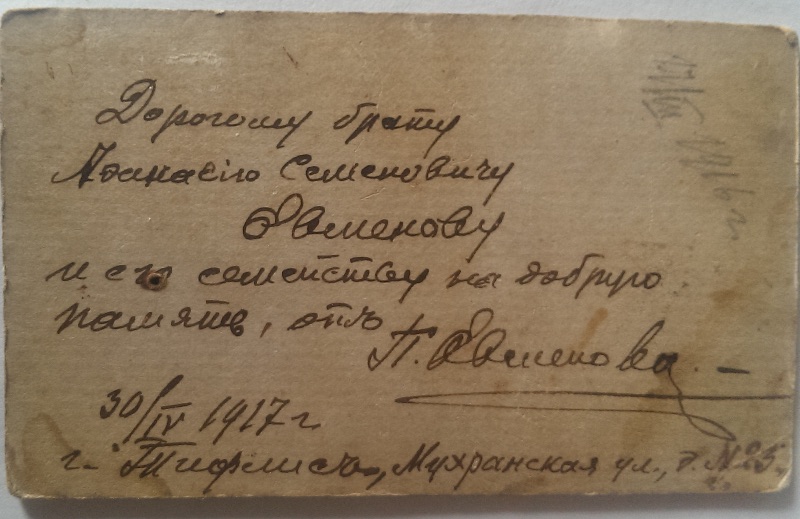 Дорогому брату
Аѳанасію Семеновичу
Евменову
и его семейству на добрую
память, отъ
П. Евменова. –
30/IV 1917 г.
г. Тифлисъ, Мухранская ул., д. № 25.